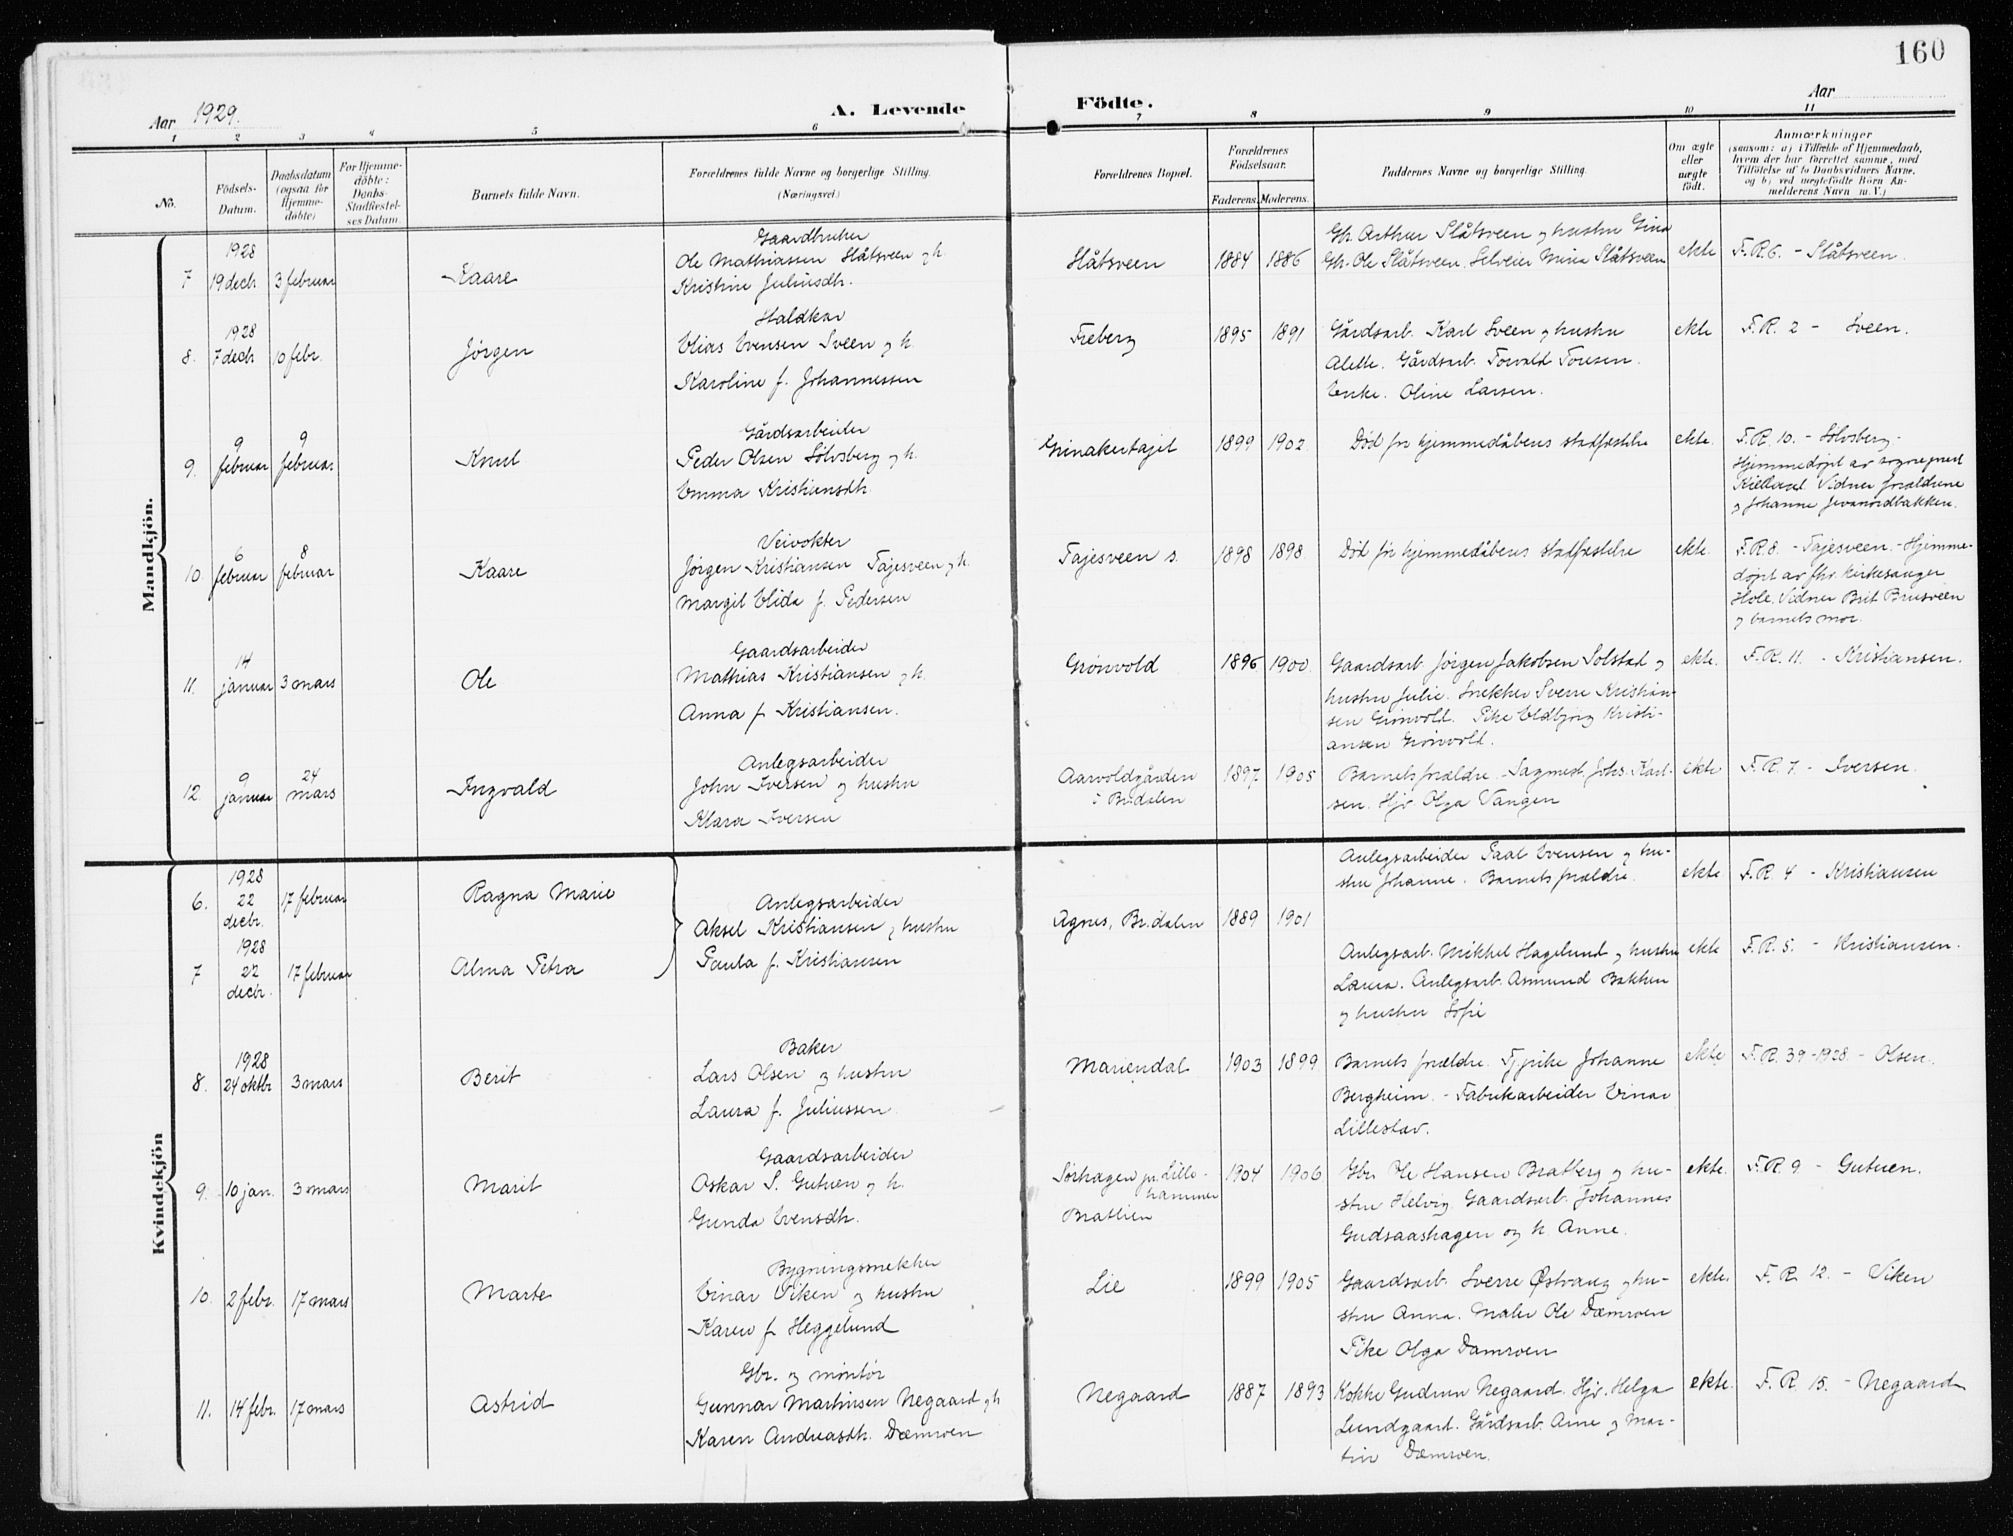 160
Aar 1929.
A. Levende Födte.
Aar
1 2 3 4 5 6 7 8 9 10 11
No.
Födsels-Datum.
Daabsdatum (ogsaa for Hjemme-döbte)
For Hjemme-döbte: Daabs-Stadfæstel-ses Datum.
Barnets fulde Navn.
Forældrenes fulde Navne og borgerlige Stilling. (Næringsvei.)
Forældrenes Bopæl.
Forældrenes Födselsaar.
Faderens. Moderens.
Faddernes Navne og borgerlige Stilling.
Om ægte eller uægte födt.
Anmærkninger
(saasom: a) i Tilfælde af Hjemmedaab,
hvem der har forrettet samme, med
Tilföielse af to Daabsvidners Navne,
og b) ved uægtefödte Börn An-
melderens Navn m. V.)
Mandkjön.
7 1928 19 decb 3 februar Kaare
Gaardbruker
Ole Mathiassen Slåtsveen og h.
Kristine Juliusdh.
Slåtsveen 1884 1886
Gb. Arthur Slåtsveen og hustru Gina
Gb. Ole Slåtsveen. Selveier Mina Slåtsveen
ekte F.R.6. - Slåtsveen.
8. 1928 7 decb 10 febr. Jørgen
Staldkar
Elias Evensen Sveen og h.
Karoline f. Johannessen
Freberg 1895 1891
Gårdsarb. Karl Sveen og hustru
Alette. Gårdsarb. Torvald Toresen.
Enke. Oline Larsen.
ekte F.R. 2 - Sveen.
9. 9 februar 9 februar Knut
Gårdsarbeider
Peder Olsen Sølvsberg og h.
Emma Kristiansdh.
Grinakertajet 1899 1902
Død før hjemmedåbens stadfæstelse
ekte. F.R. 10. - Sølvsberg -
Hjemmedøpt av sogneprest
Vidner forældrene
og Johanne
10. 6 februar 8 februar Kaare
Veivokter
Jørgen Kristiansen Tajesveen og h.
Margit Elida f. Pedersen
Tajesveen s. 1898 1898
Død før hjemmedåbens stadfæstelse
ekte. F.R.8. - Tajesveen. - Hjemme-
døpt av fhv. kirkesanger
Hole. Vidner Brit Brusveen
og barnets mor.
11. 14 januar 3 mars Ole
Gaardsarbeider
Mathias Kristiansen og h.
Anna f. Kristiansen.
Grønvold 1896 1900
Gaardsarb. Jørgen Jakobsen Solstad og
hustru Julie. Snekker Sverre Kristian-
sen Grønvold. Pike Eldbjørg Kristi-
ansen Grønvold.
ekte. F.R. 11. - Kristiansen.
12. 9 januar 24 mars Ingvald
Anlegsarbeider
John Iversen og hustru
Klara Iversen
Aarvoldgården
i Brudalen 1897 1905
Barnets forældre. - Sagmest. Johs. Karl-
sen. Hjv. Olga Vangen
ekte F.R. 7. - Iversen.
Kvindekjön
6. 1928 22 decbr. 17 februar Ragna Marie
Anlegsarbeider
Aksel Kristiansen og hustru
Paula f. Kristiansen
Agnes, Brudalen 1889 1901
Anlegsarbeider Paal Evensen og hu-
stru Johanne. Barnets forældre.
ekte F.R. 4 - Kristiansen
7 1928 22 decbr. 17 februar Alma Petra
Anlegsarb. Mikkel Hagelund og hustru
Laura. Anlegsarb. Asmund Bakken
og hustru Sofie
ekte F.R. 5. - Kristiansen.
8. 1928 24 oktbr 3 mars Berit
Baker
Lars Olsen og hustru
Laura f. Juliussen
Mariendal 1903 1899
Barnets forældre. Tj.pike Johanne
Bergheim. - Fabrikarbeider Einar
Lillestav.
ekte F.R. 39-1928 - Olsen.
9. 10 jan. 3 mars Marit
Gaardsarbeider
Oskar S. Gutuen og h.
Gunda Evensdh.
Sørhagen pr. Lille-
hammer
Bratlien 1904 1906
Gbr. Ole Hansen Bratberg og hu-
stru Helvig. Gaardsarb. Johannes
Gudsaashagen og h. Anne.
ekte. F.R. 9 - Gutuen.
10. 2 febr. 17 mars Marte
Bygningssnekker
Einar Viken og hustru
Karen f. Heggelund
Lie 1899 1905
Gaardsarb. Sverre Østvang og hu-
stru Anna. Maler Ole Dæmroen
Pike Olga Damroen
ekte. F.R. 12. - Viken
11. 14 febr. 17 mars Astrid
Gbr. og montør
Gunnar Martinsen Negaard og h
Karen Andreasdh. Dæmroen
Negaard 1887 1893
Kokke Gudrun Negaard. Hjv. Helga
Lundgaard. Gårdsarb. Arne og Mar-
tin Dæmroen.
ekte. F.R. 15. - Negaard